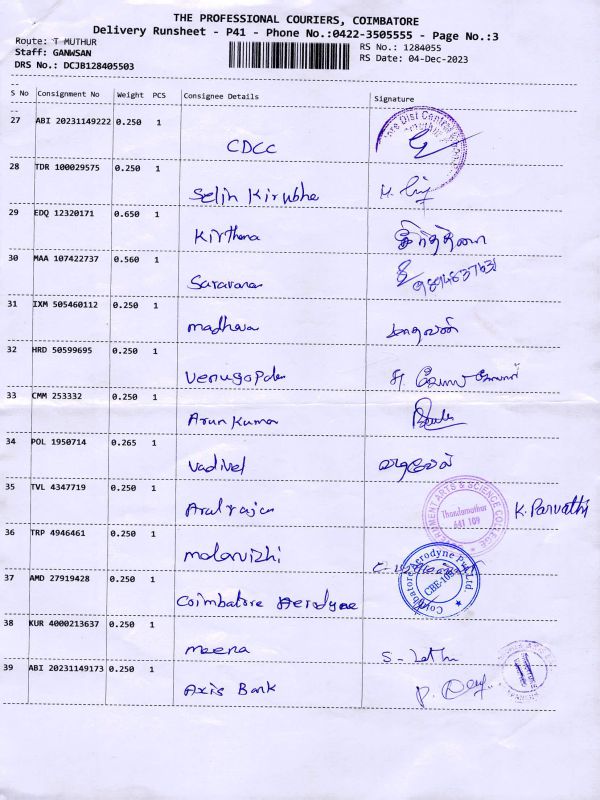 THE PROFESSIONAL COURIERS, COIMBATORE
Delivery Runsheet - P41 - Phone No.:0422-3505555 - Page No.:3
Route: T MUTHUR
RS No.: 1284055
Staff: GANWSAN
RS Date: 04-Dec-2023
DRS No.: DCJB128405503
S No Consignment No Weight PCS Consignee Details Signature
27 ABI 20231149222 0.250 1 CDCC
28 TDR 100029575 0.250 1 Selin Kirubha
29 EDQ 12320171 0.650 1 Kirthana கீர்த்தனா
30 MAA 107422737 0.560 1 Saravanan
31 IXM 505460112 0.250 1 madhava மாதவன்
32 HRD 50599695 0.250 1 Venugopalan
33 CMM 253332 0.250 1 Arun Kumar
34 POL 1950714 0.265 1 Vadivel வடிவேல்
35 TVL 4347719 0.250 1 Arulrajan K. Parvathi
GOVERNMENT ARTS & SCIENCE COLLEGE
Thondamuthur
641 109
36 TRP 4946461 0.250 1 malarvizhi
37 AMD 27919428 0.250 1 Coimbatore Aerodyne
Coimbatore Aerodyne Pvt. Ltd.
CBE-109
38 KUR 4000213637 0.250 1 meena S- Latha
39 ABI 20231149173 0.250 1 Axis Bank